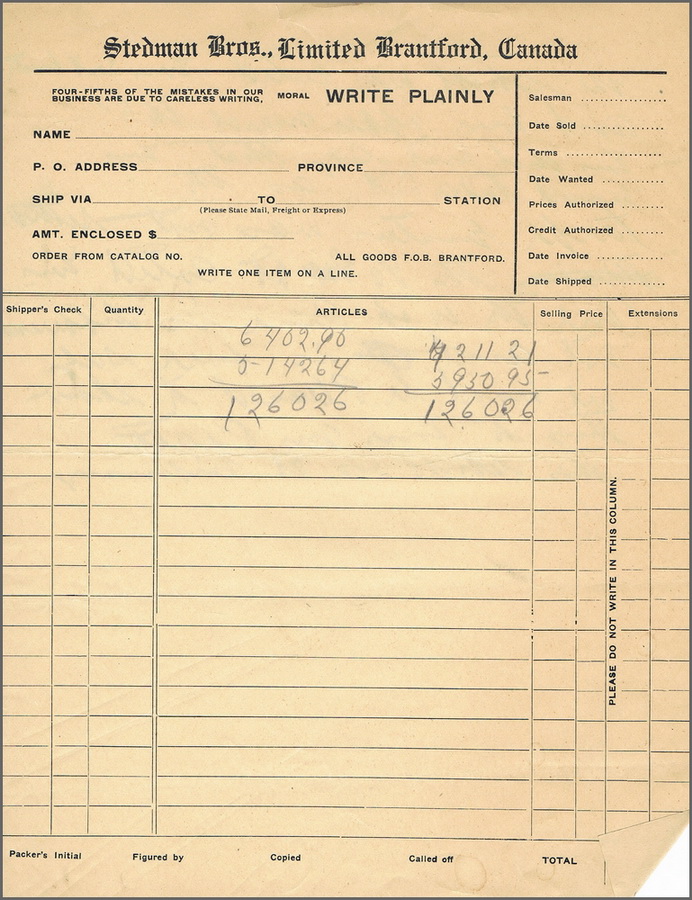 Stedman Bros., Limited Brantford, Canada
FOUR-FIFTHS OF THE MISTAKES IN OUR
BUSINESS ARE DUE TO CARELESS WRITING,
MORAL WRITE PLAINLY
NAME
P. O. ADDRESS PROVINCE
SHIP VIA TO STATION
(Please State Mail, Freight or Express)
AMT. ENCLOSED $
ORDER FROM CATALOG NO. ALL GOODS F.O.B. BRANTFORD.
WRITE ONE ITEM ON A LINE.
Salesman
Date Sold
Terms
Date Wanted
Prices Authorized
Credit Authorized
Date Invoice
Date Shipped
Shipper's Check Quantity ARTICLES Selling Price Extensions
6402.90 4211 21
5-14264 5950.95-
126026 126026
PLEASE DO NOT WRITE IN THIS COLUMN.
Packer's Initial Figured by Copied Called off TOTAL